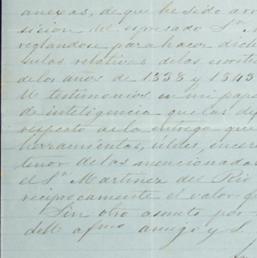 anexas, de que he sido
sicion del espresado Sr. M
reglandose para hacer dich
sulas relativas de las
de los años de 1838 y 1843
M testimonios en mi pape
de inteligencia que las di
respecto a la entrega que
herramientas, utiles,
tenor de las mencionada
el Sr. Martinez del Rio
reciprocamente el valor
Sin otro asunto por
de V. afmo. amigo y S.